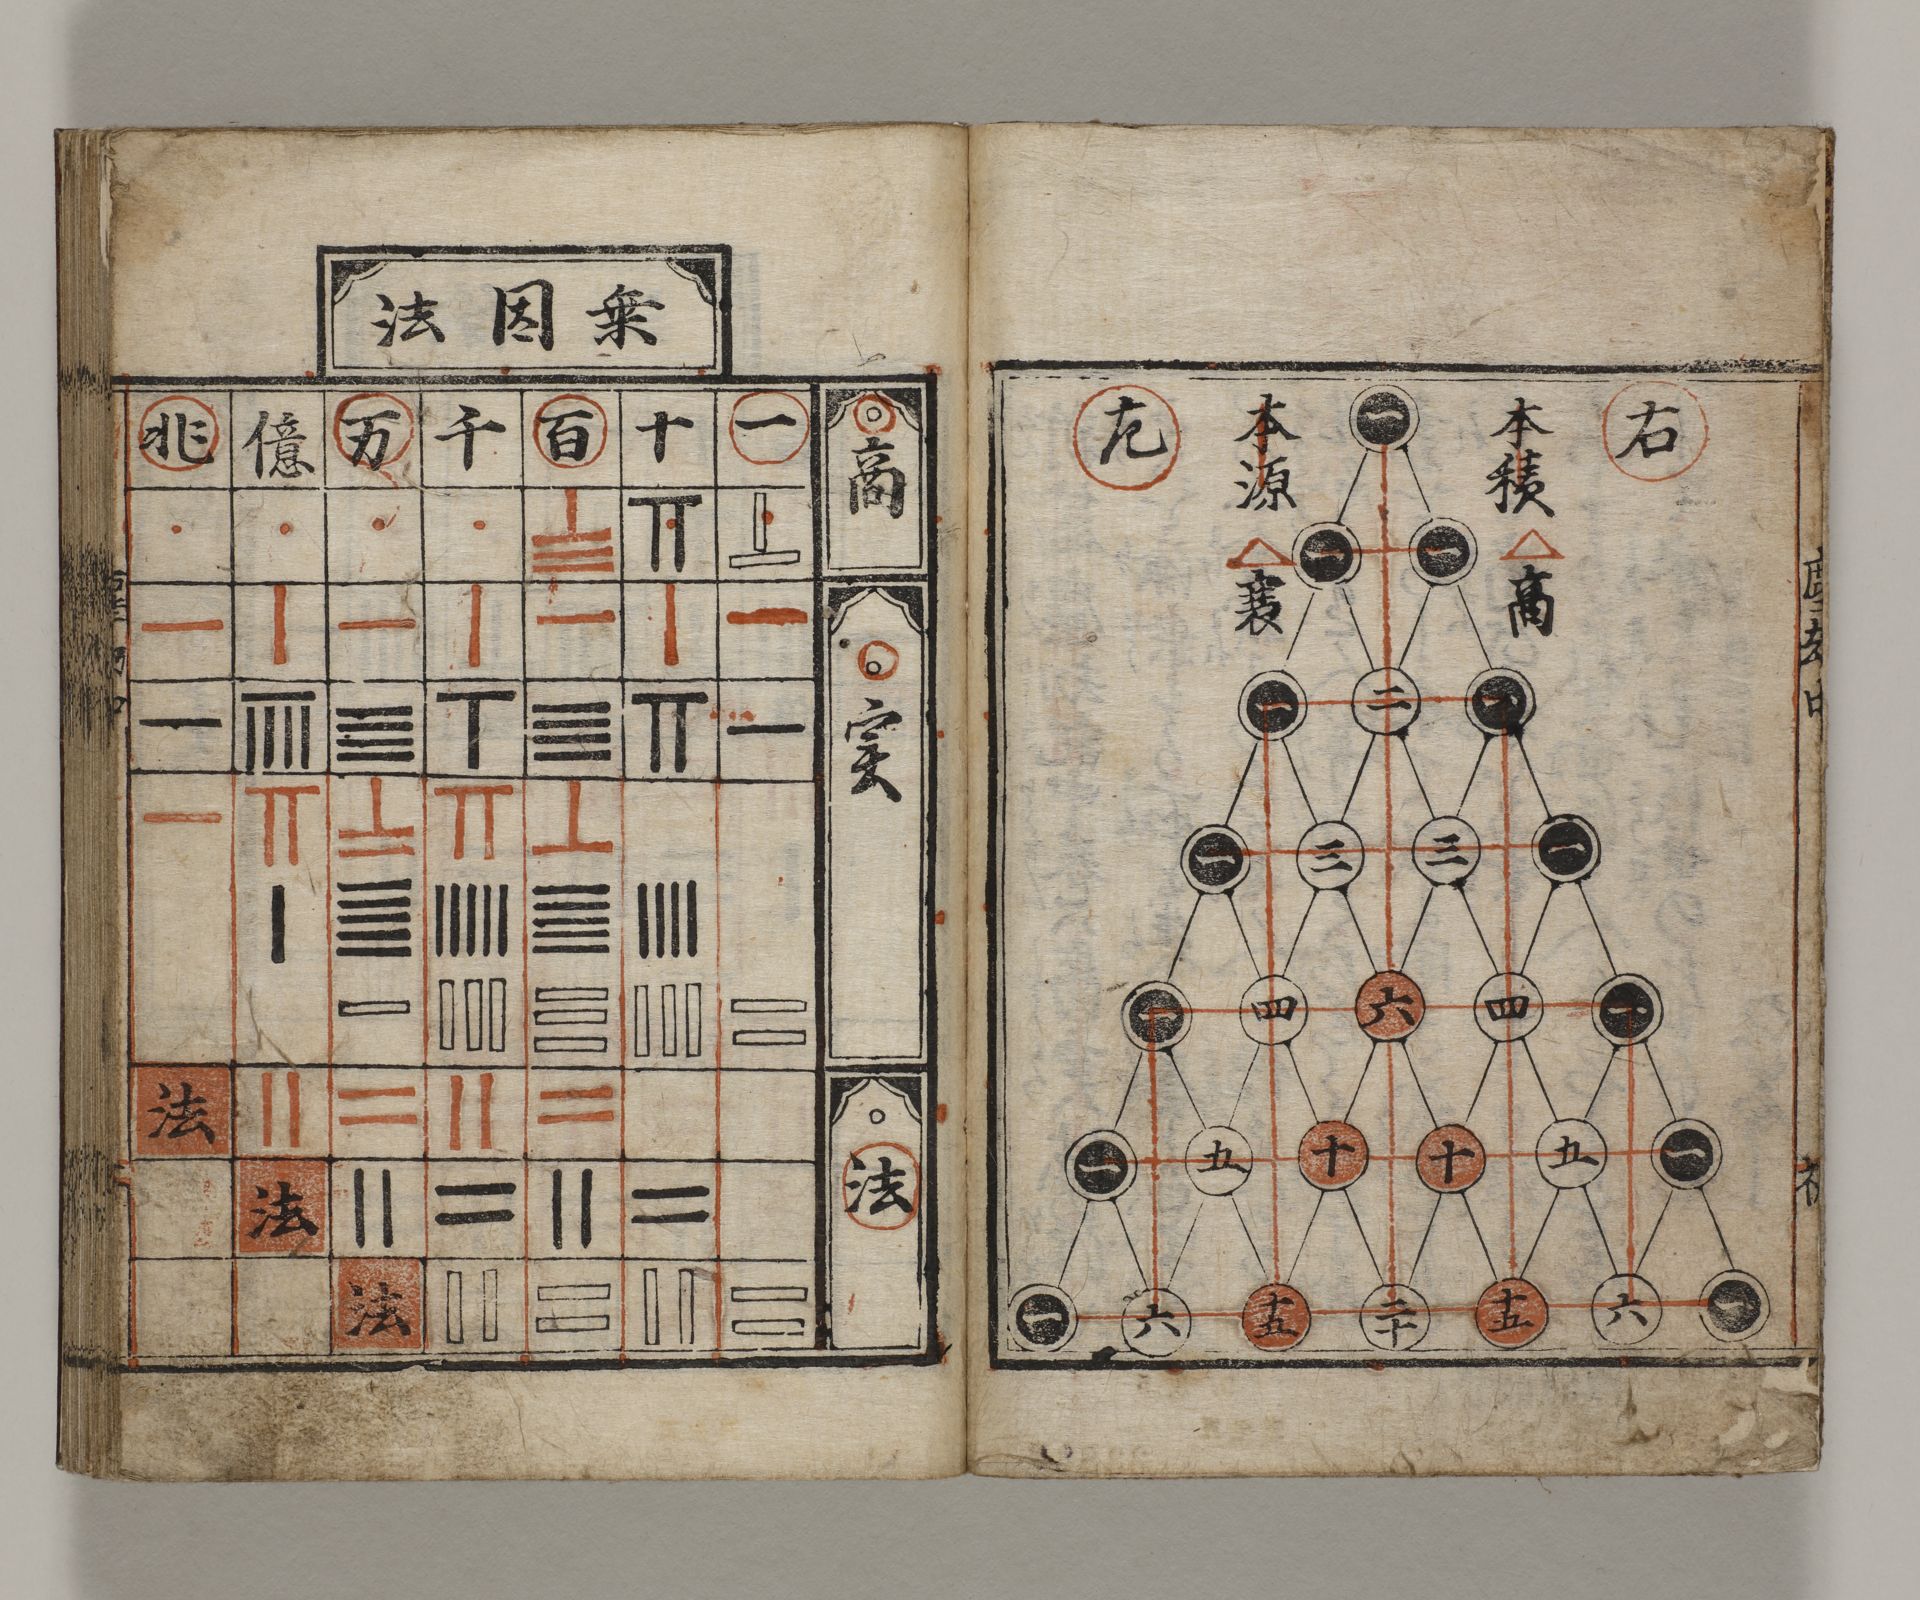 右
本積
高
一
本源
襄
左
一 一
一 二 一
一 三 三 一
一 四 六 四 一
一 五 十 十 五 一
一 六 十五 二十 十五 六 一
乗因法
一 十 百 千 万 億 兆
商
実
法
法
法
法